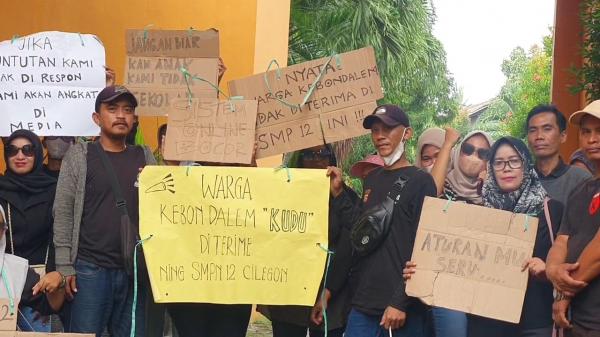 JIKA
TUNTUTAN KAMI
TAK DI RESPON
KAMI AKAN ANGKAT
DI
MEDIA
JANGAN BIAR
KAN ANAK
KAMI TIDAK
SEKOLAH
SISTEM
ONLINE
BOCOR
NYATA
WARGA KEBONDALEM
TIDAK DITERIMA DI
SMP 12 INI !!!
WARGA
KEBON DALEM "KUDU"
DITERIME
NING SMPN 12 CILEGON
ATURAN MU
SERU.....